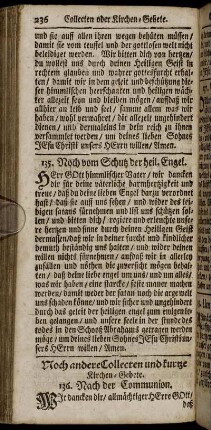 236 Collecten oder Kirchen-Gebete.
und sie auf allen ihren wegen behüten müssen/
damit sie vom teufel und der gottlosen welt nicht
beleidiget werden. Wir bitten dich von hertzen/
du wollest uns durch deinen Heiligen Geist in
rechtem glauben und wahrer gottesfurcht erhal-
ten/ damit wir in dem geleit und beschützung die-
ser himmlischen heerschaaren und heiligen wäch-
ter allezeit seyn und bleiben mögen/ auf daß wir
allhier an leib und seel/ sammt allem was wir
haben/ wohl verwahret/ dir allezeit ungehindert
dienen/ und dermaleins in dein reich zu ihnen
versammlet werden/ um deines lieben Sohnes
JEsu Christi unsers HErrn willen/ Amen.
135. Noch vom Schutz der heil. Engel.
HErr GOtt himmlischer Vater/ wir dancken
dir für deine väterliche barmhertzigkeit und
treue/ daß du deine lieben Engel darzu verordnet
hast/ daß sie auf uns sehen/ und wider des lei-
digen satans fürnehmen und list uns schützen sol-
len/ und bitten dich/ regiere und erleuchte unse-
re hertzen und sinne durch deinen Heiligen Geist
dermassen/ daß wir in deiner furcht und kindlicher
demuth beständig uns halten/ und wider deinen
willen nichts fürnehmen/ auf daß wir in allerley
zufällen und nöthen die zuversicht mögen behal-
ten/ daß deine liebe engel um uns/ und um alles/
was wir haben/ eine starcke/ feste mauer machen
werden/ damit weder der satan noch die arge welt
uns schaden könne/ und wir sicher und ungehindert
durch das geleit der heiligen engel zum ewigen le-
ben gelangen/ und unsere seele in der stunde des
todes in den Schooß Abrahams getragen werden
möge/ um deines lieben Sohnes JEsu Christi un-
sers HErrn willen/ Amen.
Noch andere Collecten und kurtze
Kirchen-Gebete.
136. Nach der Communion.
WIr dancken dir/ allmächtiger HErre GOtt/
daß